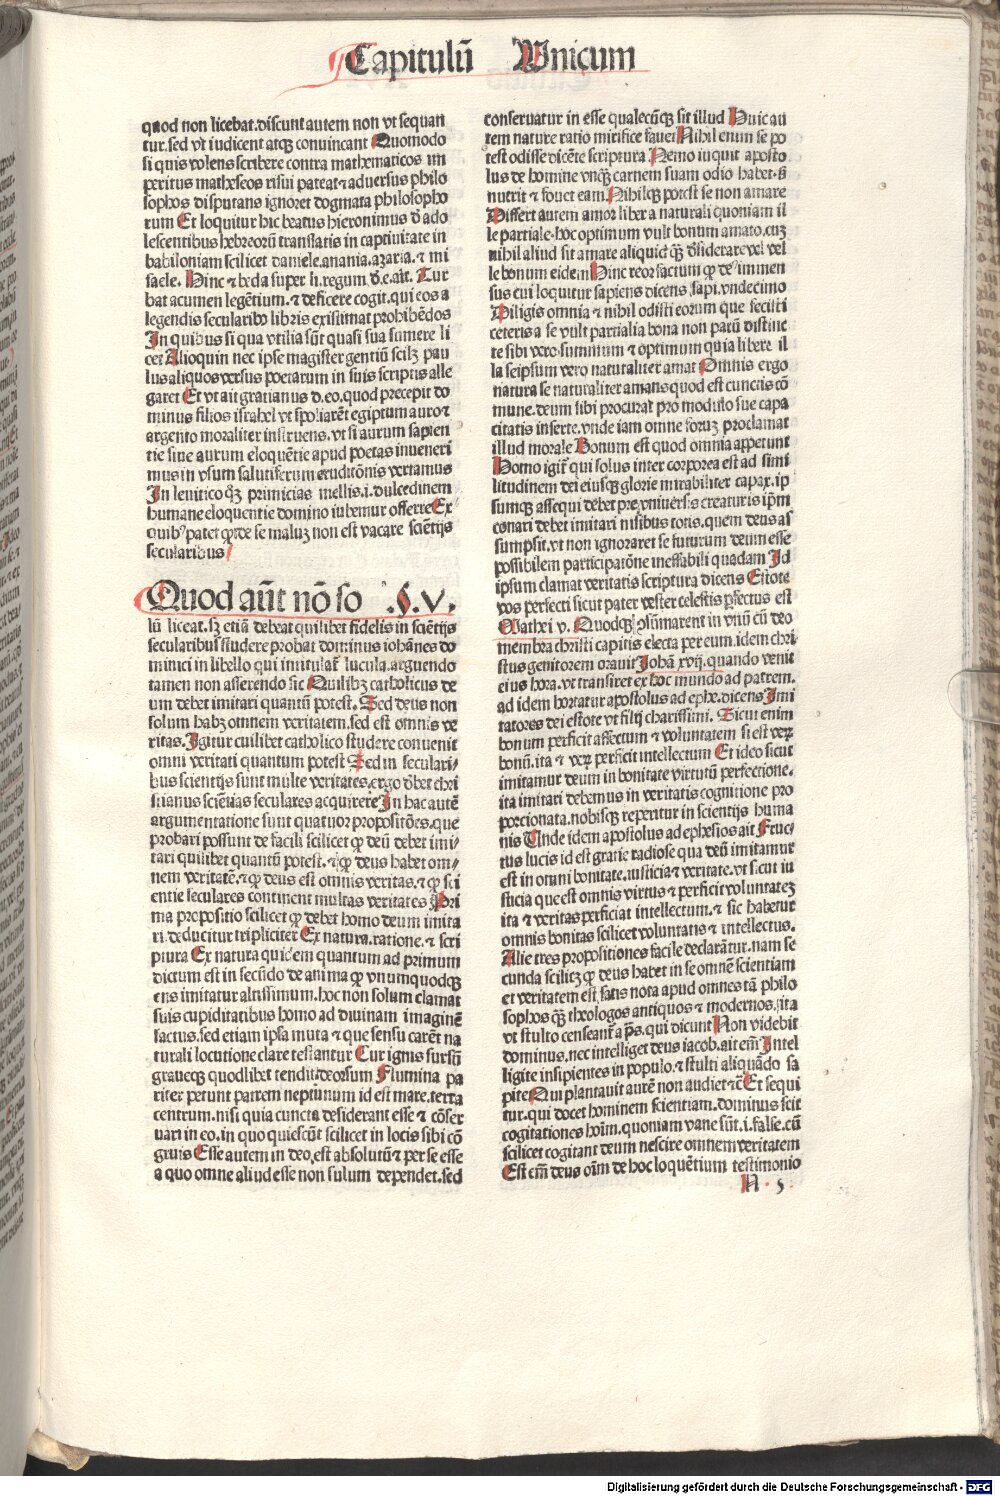 Capitulū Vnicum
quod non licebat.discunt autem non vt sequan
tur.sed vt iudicent atqꝫ conuincant Quomodo
si quis volens scribere contra mathematicos im
peritus matheseos risui pateat ⁊ aduersus philo
sophos disputans ignoret dogmata philosopho
rum Et loquitur hic beatus hieronimus ď ado
lescentibus hebreorū translatis in captiuitate in
babiloniam scilicet daniele.anania.azaria.⁊ mi
saele. Hinc ⁊ beda super li.regum ď.e.ait. Tur
bat acumen legētium.⁊ deficere cogit.qui eos a
legendis secularibꝰ libris existimat prohibēdos
In quibus si qua vtilia sūt quasi sua sumere li
cet Alioquin nec ipse magister gentiū scilꝫ pau
lus aliquos versus poetarum in suis scriptis alle
garet Et vt ait gratianus ď.eo.quod precepit do
minus filios israhel vt spoliarēt egiptum auro ⁊
argento moraliter instruens.vt si aurum sapien
tie siue aurum eloquētie apud poetas inueneri
mus in vsum salutiferum eruditōnis vertamus
In leuitico qꝫ primicias mellis.i.dulcedinem
humane eloquentie domino iubemur offerre Ex
quibꝰ patet ꝙ de se maluꝫ non est vacare sciētijs
secularibus
Quod aūt nō so .§.V.
lū liceat.sꝫ etiā debeat quilibet fidelis in sciētijs
secularibus studere probat dominus iohānes do
minici in libello qui intitulať lucula.arguendo
tamen non asserendo sic Quilibꝫ catholicus de
um debet imitari quantū potest. Sed deus non
solum habꝫ omnem veritatem.sed est omnis ve
ritas. Igitur cuilibet catholico studere conuenit
omni veritati quantum potest Sed in seculari⸗
bus scientijs sunt multe veritates.ergo ďbet chri
stianus sciētias seculares acquirere In hac autē
argumentatione sunt quatuor propositōes.que
probari possunt de facili scilicet ꝙ deū debet imi⸗
tari quilibet quantū potest.⁊ ꝙ deus habet om⸗
nem veritatē.⁊ ꝙ deus est omnis veritas.⁊ ꝙ sci
entie seculares continent multas veritates Pri
ma propositio scilicet ꝙ debet homo deum imita
ri.deducitur tripliciter Ex natura.ratione.⁊ scri
ptura Ex natura quidem quantum ad primum
dictum est in secūdo de anima ꝙ vnumquodqꝫ
ens imitatur altissimum.hoc non solum clamat
suis cupiditatibus homo ad diuinam imaginē
factus.sed etiam ipsa muta ⁊ que sensu carēt na
turali locutione clare testantur Cur ignis sursū
graueqꝫ quodlibet tendit deorsum Flumina pa
riter petunt patrem neptunum id est mare.terra
centrum.nisi quia cuncta desiderant esse ⁊ cōser
uari in eo.in quo quiescūt scilicet in locis sibi cō
gruis Esse autem in deo.est absolutū ⁊ per se esse
a quo omne aliud esse non solum dependet.sed
conseruatur in esse qualecūqꝫ sit illud Huic au
tem nature ratio mirifice fauet Nihil enim se po
test odisse dicēte scriptura Nemo inquit aposto
lus de homine vnqꝫ carnem suam odio habet.sꝫ
nutrit ⁊ fouet eam. Nihilqꝫ potest se non amare
Differt autem amor liber a naturali quoniam il
le partiale.hoc optimum vult bonum amato.cuꝫ
nihil aliud sit amare aliquid qꝫ ďsiderare vel vel
le bonum eidem Hinc reor factum ꝙ deꝰ immen
sus cui loquitur sapiens dicens sapi.vndecimo
Diligis omnia ⁊ nihil odisti eorum que fecisti
ceteris a se vult partialia bona non parū distinc
te sibi vero summum ⁊ optimum quia libere il
la seipsum vero naturaliter amat Omnis ergo
natura se naturaliter amans quod est cunctis cō
mune.deum sibi procurat pro modulo sue capa
citatis inserte.vnde iam omne foruꝫ proclamat
illud morale Bonum est quod omnia appetunt
Homo igiť qui solus inter corporea est ad simi
litudinem dei eiusqꝫ glorie mirabiliter capax.ip
sumqꝫ assequi debet pre vniuersis creaturis ipm̄
conari debet imitari nisibus totis.quem deus as
sumpsit.vt non ignoraret se futurum deum esse
possibilem participatōne ineffabili quadam Id
ipsum clamat veritatis scriptura dicens Estote
vos perfecti sicut pater vester celestis ꝑfectus est
Mathei v. Quodqꝫ ꝯsūmarent in vnū cū deo
membra christi capitis electa per eum.idem chri
stus genitorem orauit Johā xvij.quando venit
eius hora.vt transiret ex hoc mundo ad patrem.
ad idem hortatur apostolus ad ephe.dicens Imi
tatores dei estote vt filij charissimi. Sicut enim
bonum perficit affectum ⁊ voluntatem si est veꝝ
bonū.ita ⁊ veꝝ perficit intellectum Et ideo sicut
imitamur deum in bonitate virtutū perfectione.
ita imitari debemus in veritatis cognitione pro
porcionata.nobisqꝫ reperitur in scientijs huma
nis Unde idem apostolus ad ephesios ait Fruc
tus lucis id est gratie radiose qua deū imitamur
est in omni bonitate.iusticia ⁊ veritate.vt sicut iu
sticia que est omnis virtus ⁊ perficit voluntateꝫ
ita ⁊ veritas perficiat intellectum.⁊ sic habetur
omnis bonitas scilicet voluntatis ⁊ intellectus.
Alie tres propositiones facile declarātur.nam se
cunda scilicꝫ ꝙ deus habet in se omnē scientiam
et veritatem est satis nota apud omnes tā philo
sophos qꝫ theologos antiquos ⁊ modernos.ita
vt stulto censeant̄ a ps̄.qui dicunt Non videbit
dominus.nec intelliget deus iacob.ait em̄ Intel
ligite insipientes in populo.⁊ stulti aliquādo sa
pite Qui plantauit aurē non audiet ⁊c̄ Et sequi
tur.qui docet hominem scientiam.dominus scit
cogitationes hoīm.quoniam vane sūt.i.false.cū
scilicet cogitant deum nescire omnem veritatem
Est em̄ deus oīm de hoc loquētium testimonio
A 5
Digitalisierung gefördert durch die Deutsche Forschungsgemeinschaft - DFG